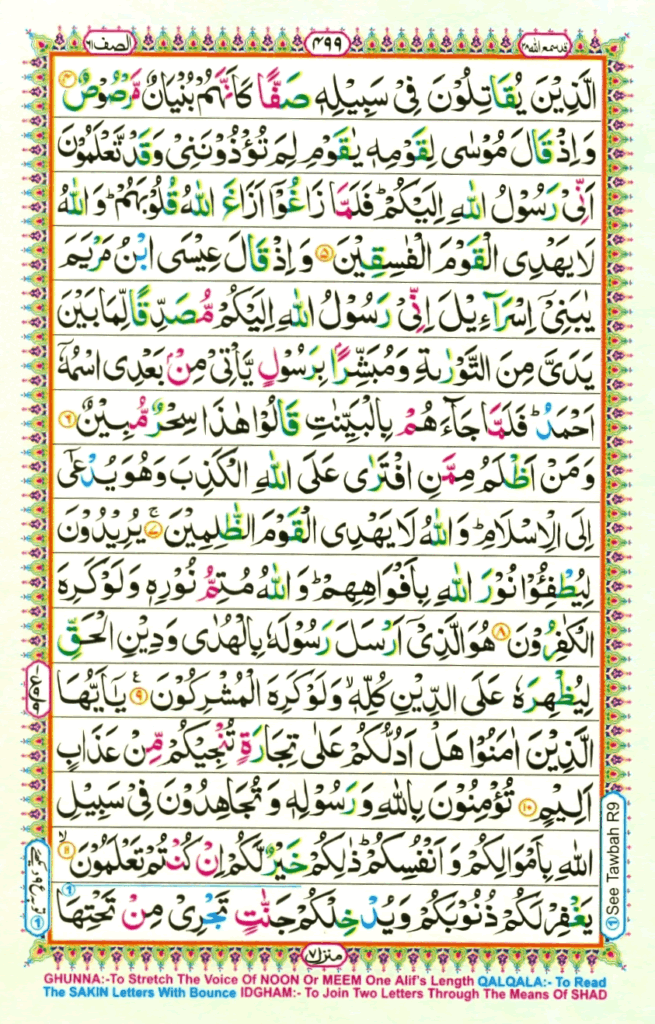 قد سمع الله ۲۸
۴۹۹
الصف ۶۱
الَّذِیْنَ یُقَاتِلُوْنَ فِیْ سَبِیْلِهٖ صَفًّا كَاَنَّهُمْ بُنْیَانٌ مَّرْصُوْصٌ ۴
وَ اِذْ قَالَ مُوْسٰى لِقَوْمِهٖ یٰقَوْمِ لِمَ تُؤْذُوْنَنِیْ وَ قَدْ تَّعْلَمُوْنَ
اَنِّیْ رَسُوْلُ اللّٰهِ اِلَیْكُمْ ؕ فَلَمَّا زَاغُوْۤا اَزَاغَ اللّٰهُ قُلُوْبَهُمْ ؕ وَ اللّٰهُ
لَا یَهْدِی الْقَوْمَ الْفٰسِقِیْنَ ۵ وَ اِذْ قَالَ عِیْسَى ابْنُ مَرْیَمَ
یٰبَنِیْۤ اِسْرَآءِیْلَ اِنِّیْ رَسُوْلُ اللّٰهِ اِلَیْكُمْ مُّصَدِّقًا لِّمَا بَیْنَ
یَدَیَّ مِنَ التَّوْرٰىةِ وَ مُبَشِّرًۢا بِرَسُوْلٍ یَّاْتِیْ مِنْۢ بَعْدِی اسْمُهٗۤ
اَحْمَدُ ؕ فَلَمَّا جَآءَهُمْ بِالْبَیِّنٰتِ قَالُوْا هٰذَا سِحْرٌ مُّبِیْنٌ ۶
وَ مَنْ اَظْلَمُ مِمَّنِ افْتَرٰى عَلَى اللّٰهِ الْكَذِبَ وَ هُوَ یُدْعٰۤى
اِلَى الْاِسْلَامِ ؕ وَ اللّٰهُ لَا یَهْدِی الْقَوْمَ الظّٰلِمِیْنَ ۷ ۚ یُرِیْدُوْنَ
لِیُطْفِـُٔوْا نُوْرَ اللّٰهِ بِاَفْوَاهِهِمْ ؕ وَ اللّٰهُ مُتِمُّ نُوْرِهٖ وَ لَوْ كَرِهَ
الْكٰفِرُوْنَ ۸ هُوَ الَّذِیْۤ اَرْسَلَ رَسُوْلَهٗ بِالْهُدٰى وَ دِیْنِ الْحَقِّ
لِیُظْهِرَهٗ عَلَى الدِّیْنِ كُلِّهٖ ۙ وَ لَوْ كَرِهَ الْمُشْرِكُوْنَ ۹ ع یٰۤاَیُّهَا
الَّذِیْنَ اٰمَنُوْا هَلْ اَدُلُّكُمْ عَلٰى تِجَارَةٍ تُنْجِیْكُمْ مِّنْ عَذَابٍ
اَلِیْمٍ ۱۰ تُؤْمِنُوْنَ بِاللّٰهِ وَ رَسُوْلِهٖ وَ تُجَاهِدُوْنَ فِیْ سَبِیْلِ
اللّٰهِ بِاَمْوَالِكُمْ وَ اَنْفُسِكُمْ ؕ ذٰلِكُمْ خَیْرٌ لَّكُمْ اِنْ كُنْتُمْ تَعْلَمُوْنَ ۱۱ ۙ
یَغْفِرْ لَكُمْ ذُنُوْبَكُمْ وَ یُدْخِلْكُمْ جَنّٰتٍ تَجْرِیْ مِنْ تَحْتِهَا
① See Tawbah R9
منزل ۷
GHUNNA:-To Stretch The Voice Of NOON Or MEEM One Alif's Length QALQALA:- To Read
The SAKIN Letters With Bounce IDGHAM:- To Join Two Letters Through The Means Of SHAD